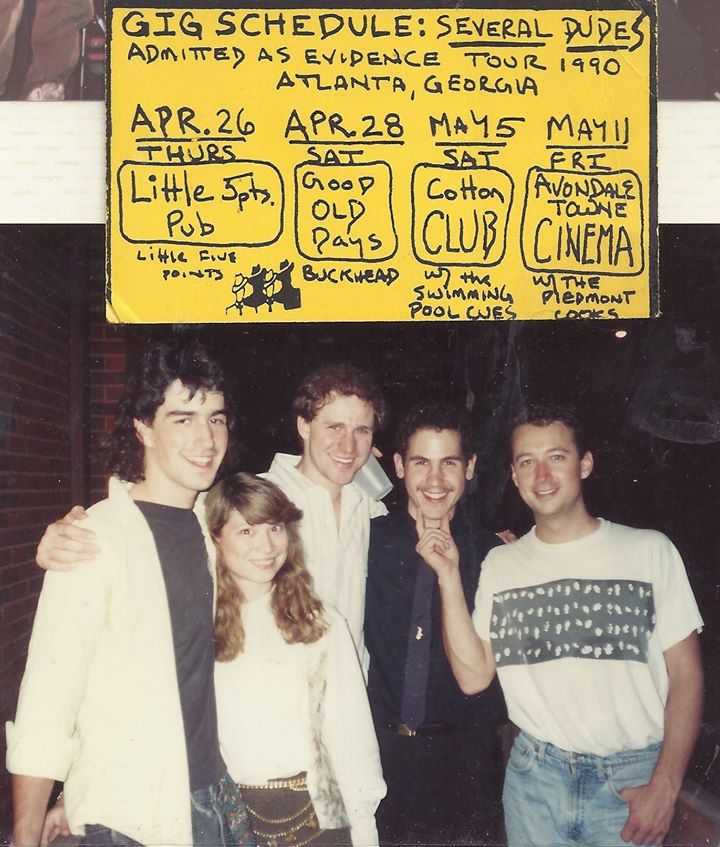 GIG SCHEDULE: SEVERAL DUDES
ADMITTED AS EVIDENCE TOUR 1990
ATLANTA, GEORGIA
APR. 26
THURS
Little 5pts.
Pub
Little Five
Points
APR. 28
SAT
GOOD
OLD
Days
BUCKHEAD
MAY 5
SAT
Cotton
CLUB
w/ the
SWIMMING
POOL CUES
MAY 11
FRI
AVONDALE
TOWNE
CINEMA
W/ THE
PIEDMONT
COOKS